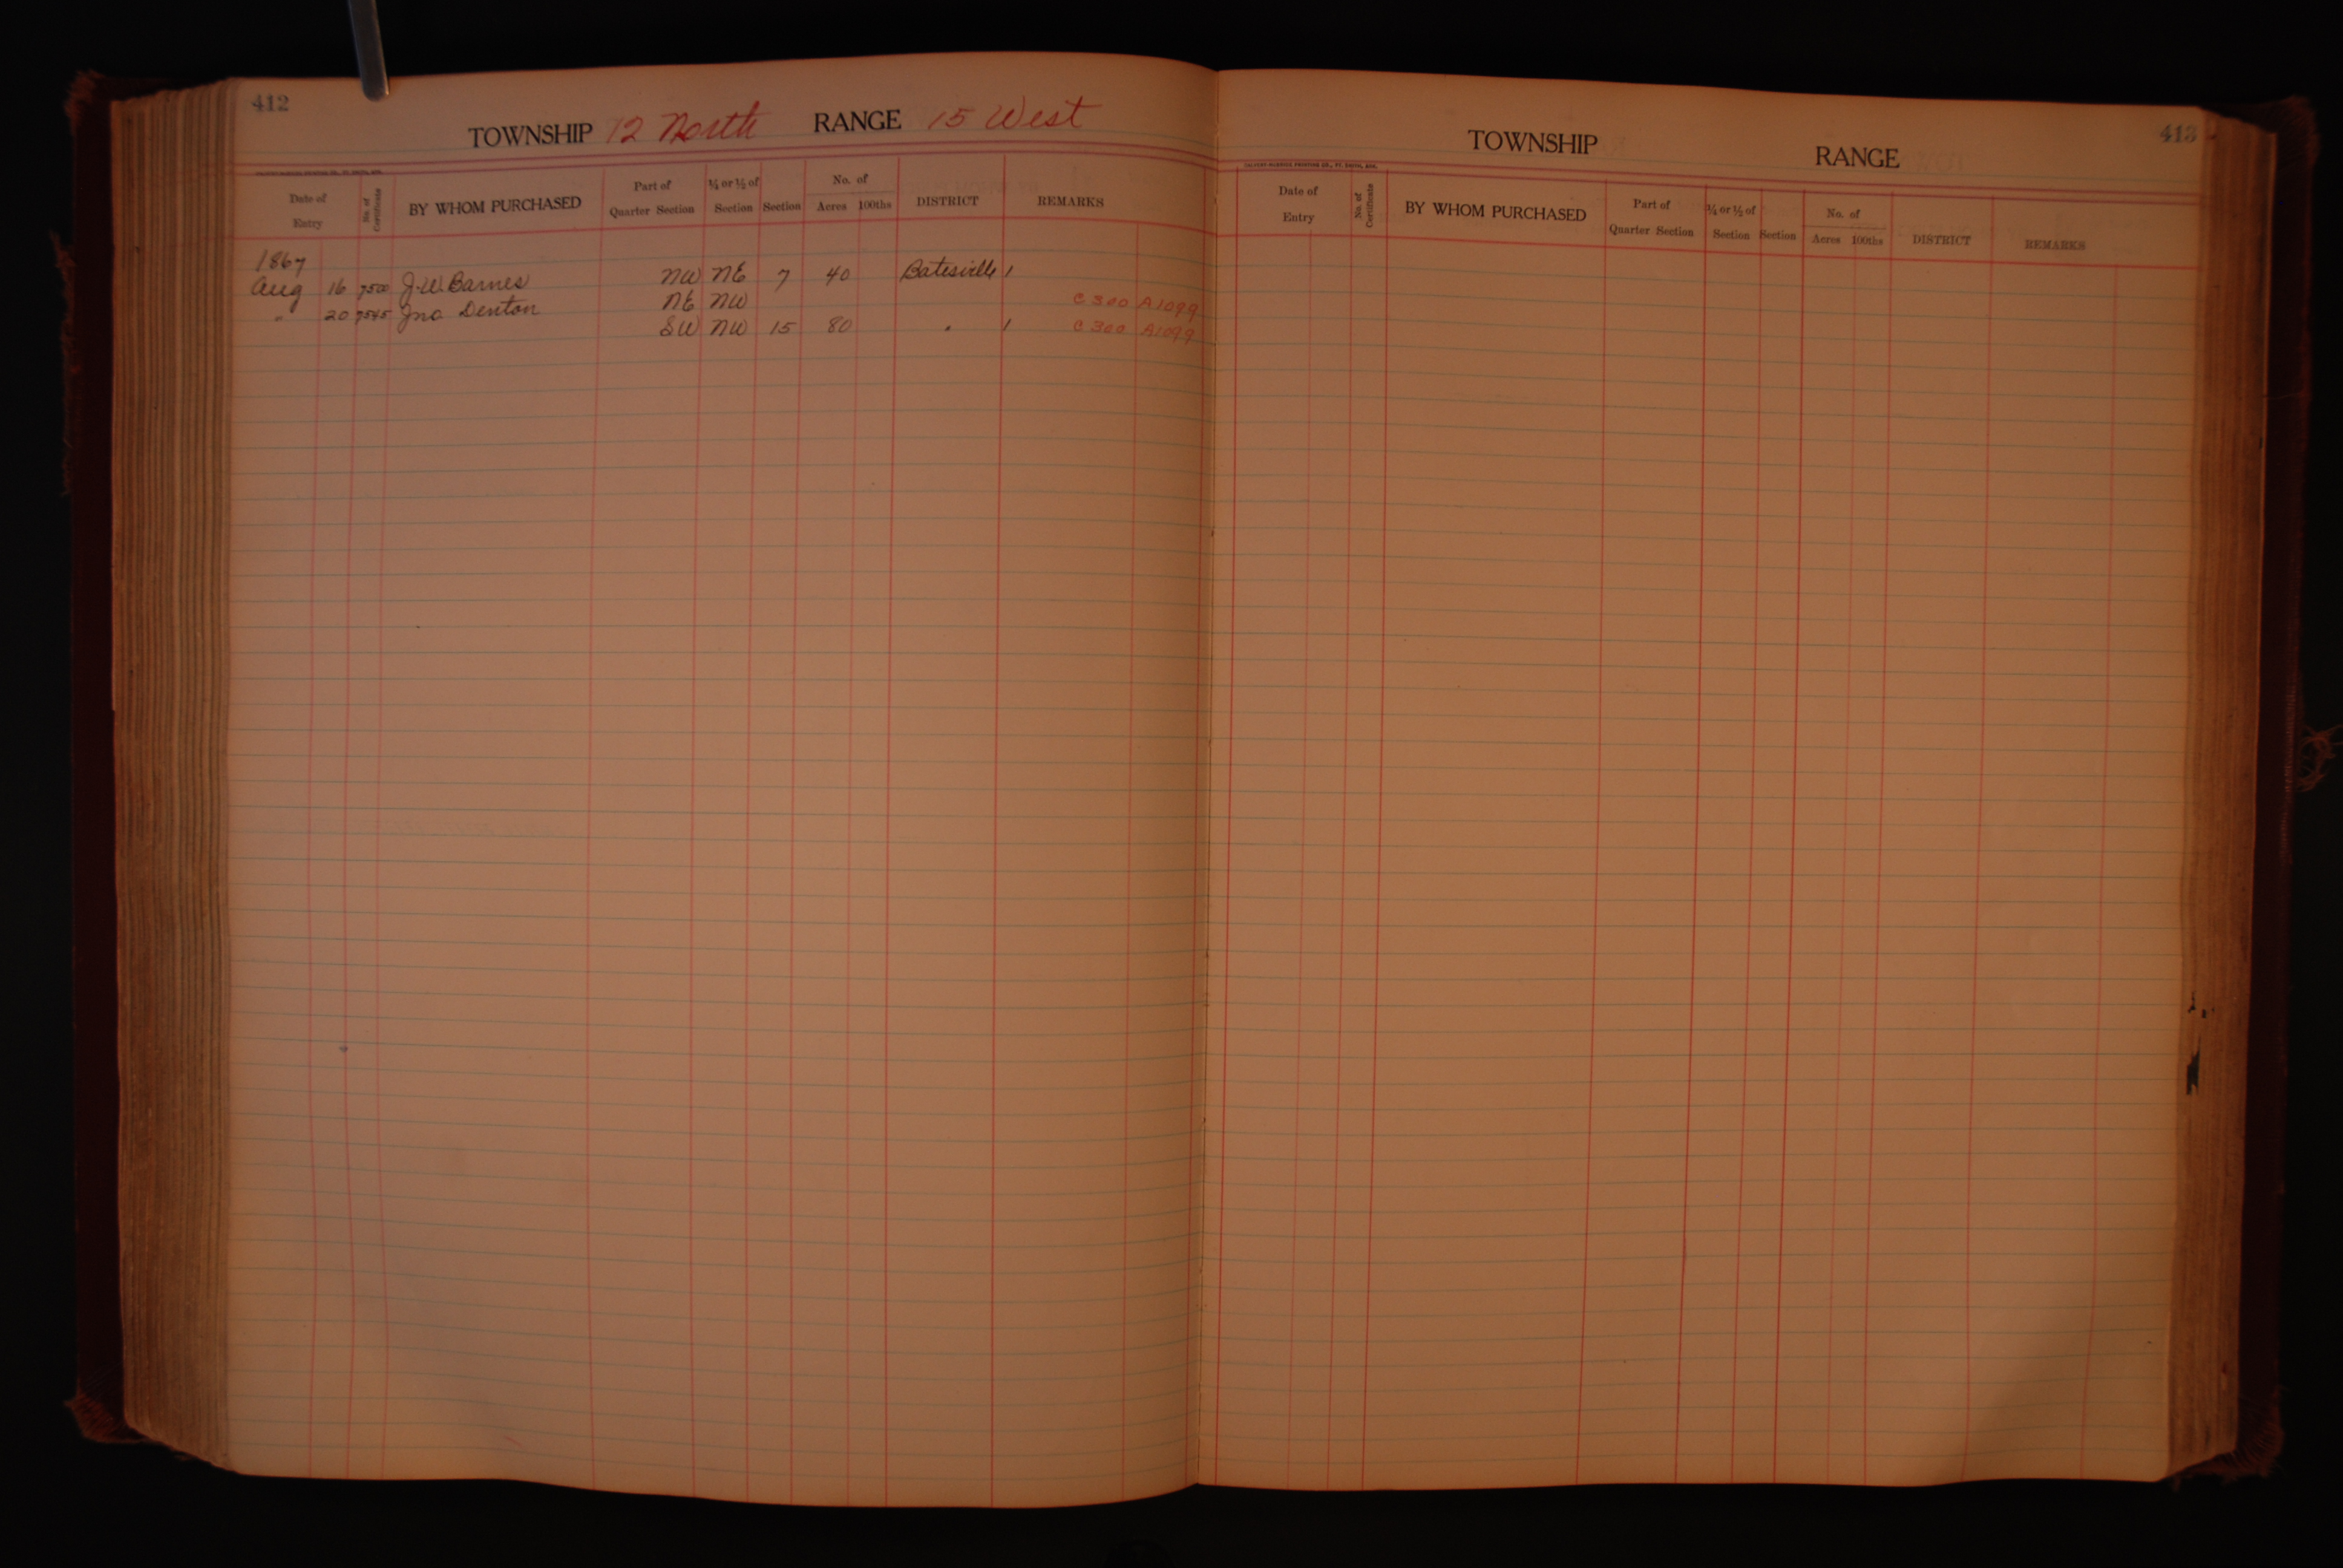 412
TOWNSHIP 12 North RANGE 15 West
Date of Entry No. of Certificate BY WHOM PURCHASED Part of Quarter Section ¼ or ½ of Section Section No. of Acres 100ths DISTRICT REMARKS
1867
Aug 16 7500 J. W. Barnes NW NE 7 40 Batesville 1
" 20 7545 Jno Denton NE NW C 300 A1099
SW NW 15 80 " 1 C 300 A1099
413
TOWNSHIP RANGE
Date of Entry No. of Certificate BY WHOM PURCHASED Part of Quarter Section ¼ or ½ of Section Section No. of Acres 100ths DISTRICT REMARKS